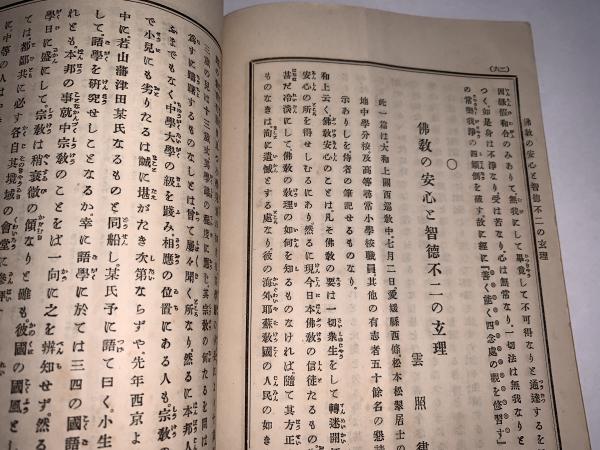 佛敎の安心と智德不二の玄理
(六二)
因緣假和合のみありて無我にして畢竟して不可得なりと通達するを
つく如是身は不淨なり受は苦なり心は無常なり一切法は無我なりと
の常樂我淨の四顚倒を破す故に經に『善く能く四念處の觀を修習す』
〇
佛敎の安心と智德不二の玄理
雲照律
此一篇は大和上關西巡敎中七月二日愛媛縣西條松本松翠居士の
地中學分校及高等尋常小學校職員其他の有志者五十餘名の懇請
示ありしを侍者の筆記せるものなり。
和上云く佛敎安心のことは凡そ佛敎の要は一切衆生をして轉迷開悟
安心の所を得せしむるにあり然るに現今日本佛敎の信徒たるもの
甚だ冷淡にして佛敎の敎理の如何を知るものなければ隨て其方正
ものなきは洵に遺憾とする處なり彼の海外耶蘇敎國の人民の如き
三歲の兒は十二歲
爲すに躊躇するものなしとは曾て屢々聞く所なり然るに本邦人
ふまでもなく中學大學の級を踐み相應の位置にある人も宗敎の
で小兒にも劣りたるは誠に堪がたき次第ならずや。先年西京よ
中に若山藩津田某氏なるものと同船し某氏予に語て曰く。小生
して語學を硏究せしことなるか幸に語學に於ては三四の國語
れども本邦の事就中宗敎のことをば一向に之を辨知せず。然る
學日に盛にして宗敎は稍衰微の傾なりと雖も。彼國の國風とし
ては都鄙共に必す各自其壇域の會堂に參詣
に中等の人は